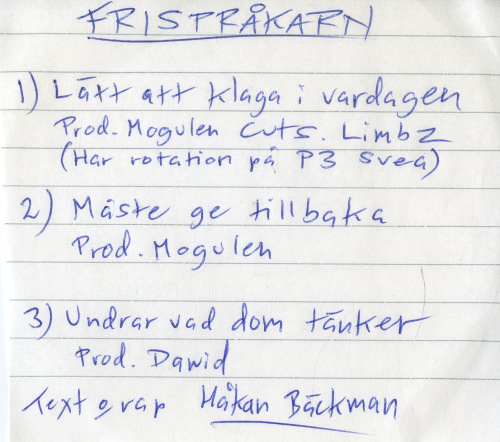 FRISPRÅKARN
1) Lätt att klaga i vardagen
Prod. Mogulen Cuts. Limbz
(Har rotation på P3 Svea)
2) Måste ge tillbaka
Prod. Mogulen
3) Undrar vad dom tänker
Prod. Dawid
Text o rap Håkan Bäckman